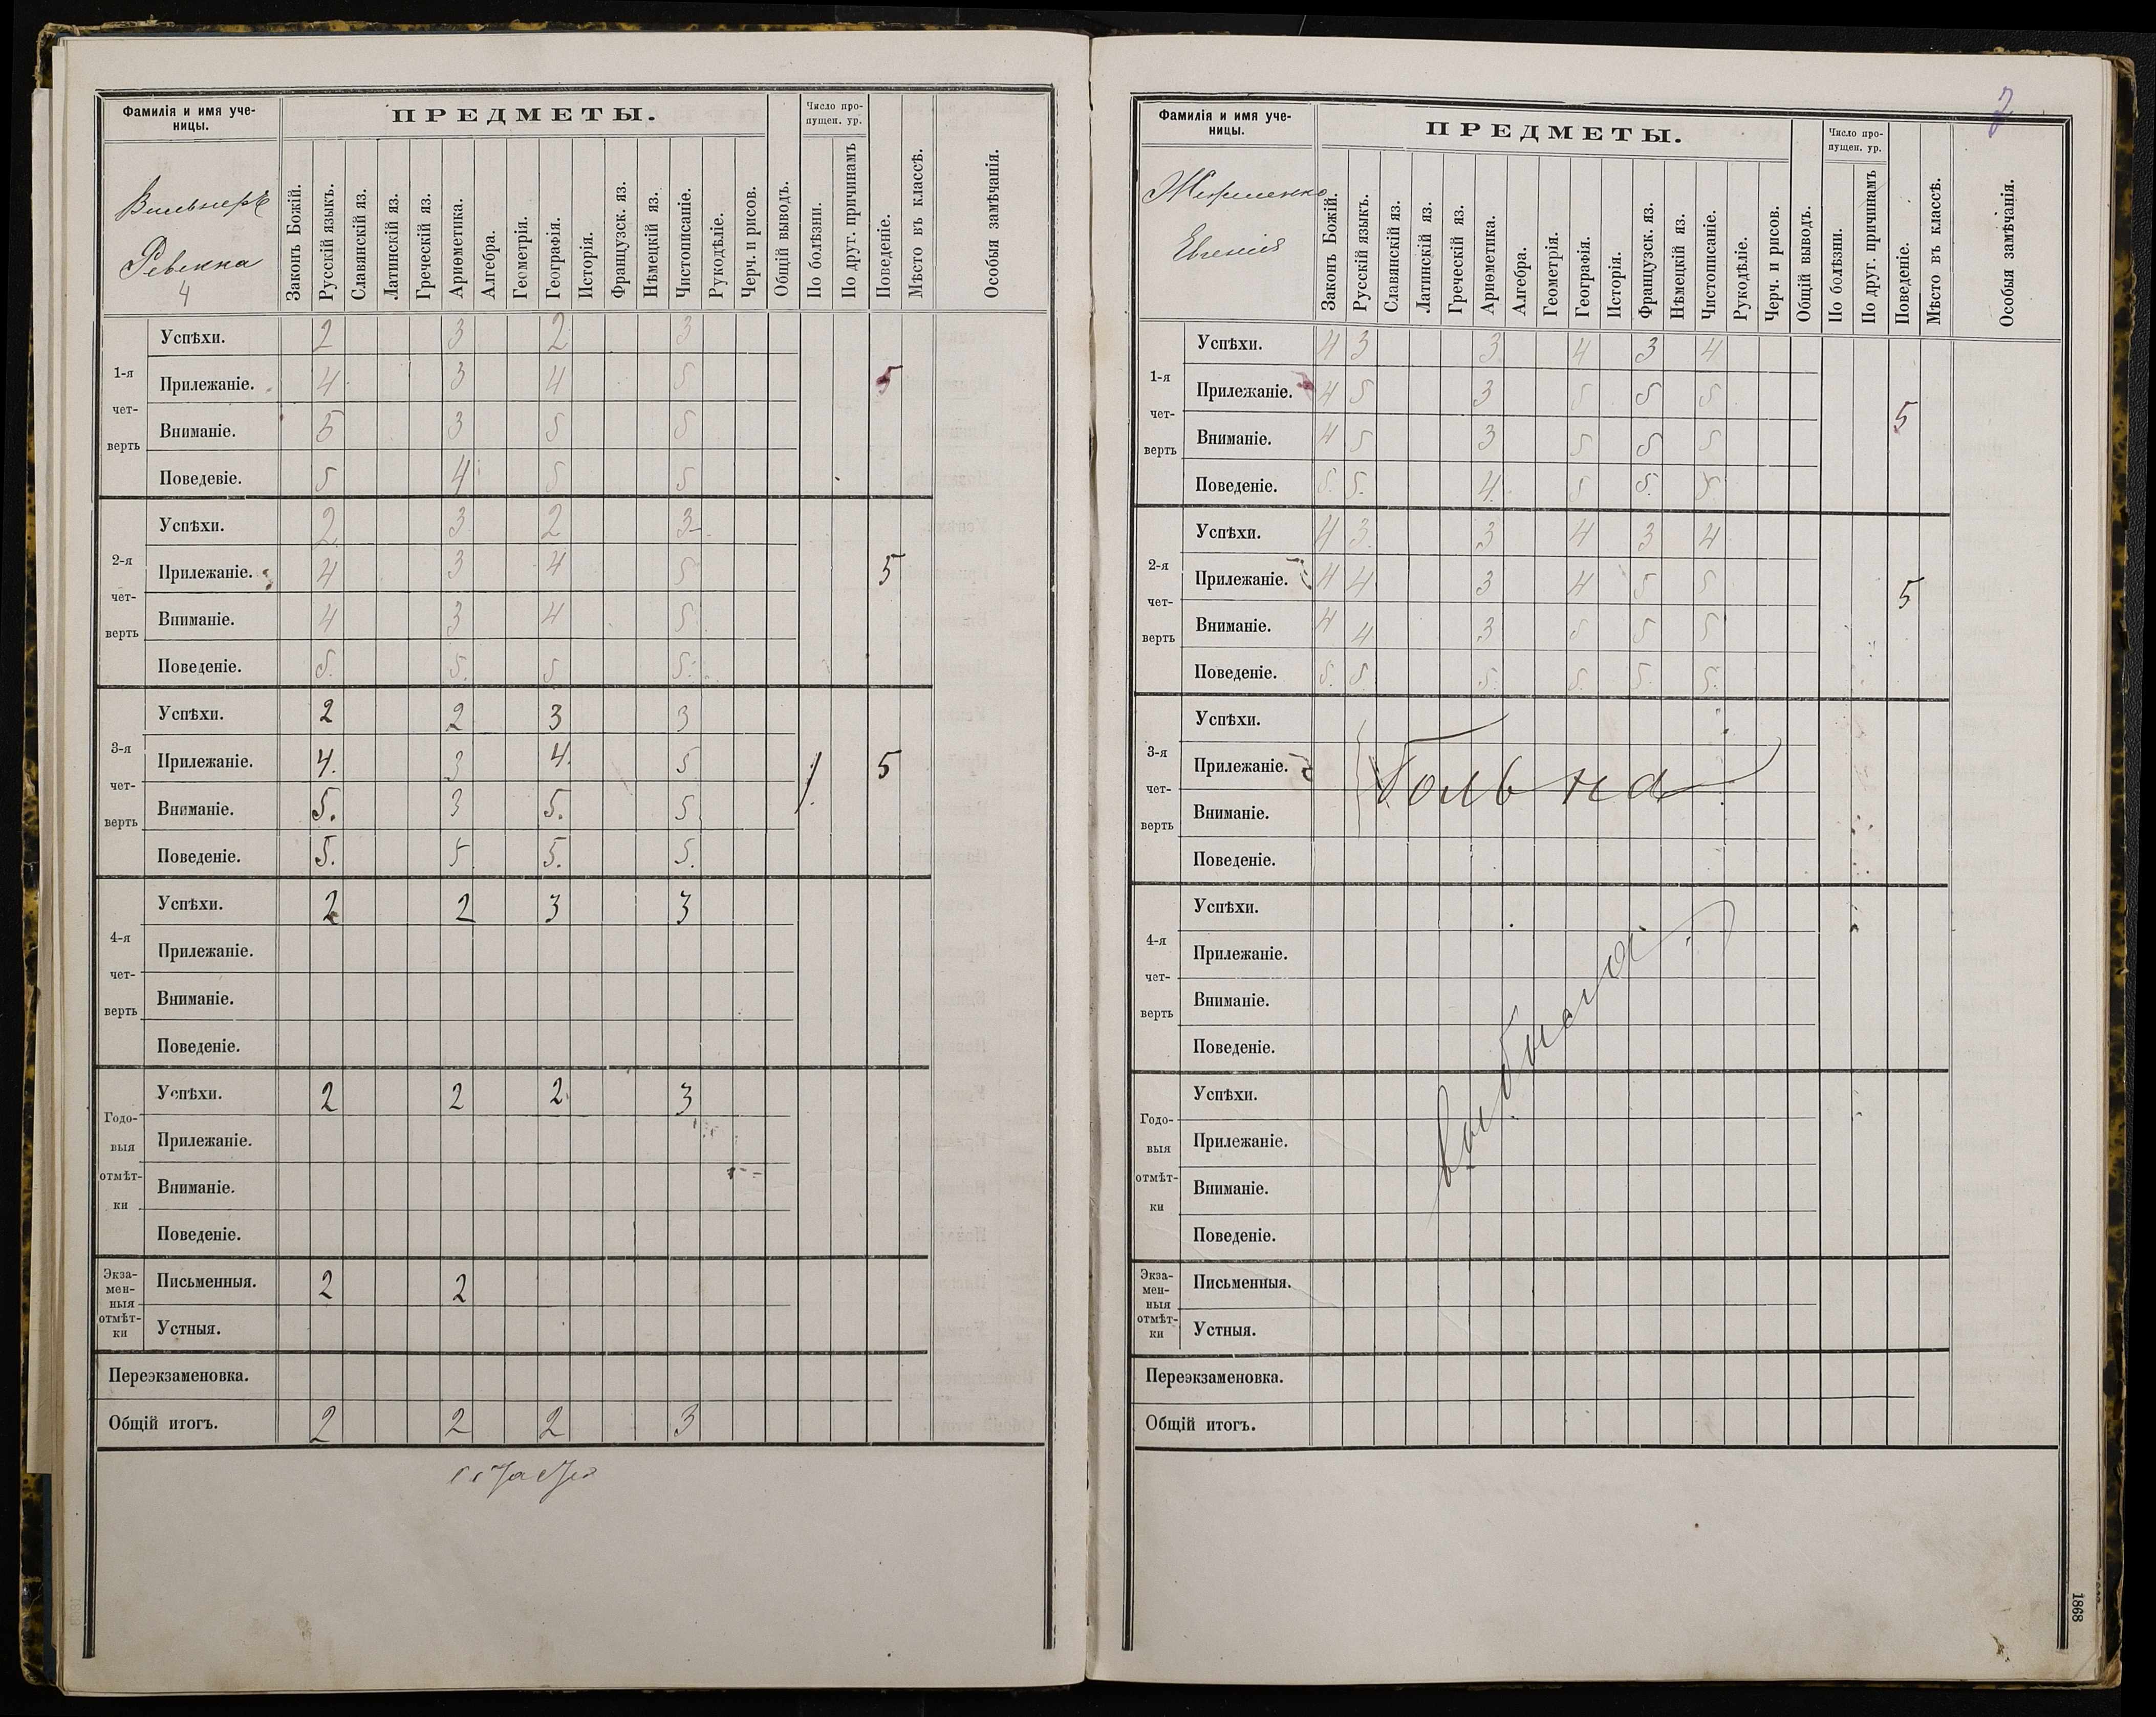 Фамилія и имя уче-
ницы.
ПРЕДМЕТЫ.
Число про-
пущен. ур.
Вильнеръ
Ревекка
4
Законъ Божій.
Русскій языкъ.
Славянскій яз.
Латинскій яз.
Греческій яз.
Ариѳметика.
Алгебра.
Геометрія.
Географія.
Исторія.
Французск. яз.
Нѣмецкій яз.
Чистописаніе.
Рукодѣліе.
Черч. и рисов.
Общій выводъ.
По болѣзни.
По друг. причинамъ
Поведеніе.
Мѣсто въ классѣ.
Особыя замѣчанія.
1-я
чет-
верть
Успѣхи. 2 3 2 3
Прилежаніе. 4 3 4 5 5
Вниманіе. 5 3 5 5
Поведевіе. 5 4 5 5
2-я
чет-
верть
Успѣхи. 2 3 2 3-
Прилежаніе. 4 3 4 5 5
Вниманіе. 4 3 4 5
Поведеніе. 5. 5. 5 5.
3-я
чет-
верть
Успѣхи. 2 2 3 3
Прилежаніе. 4. 3 4. 5 1 5
Вниманіе. 5. 3 5. 5
Поведеніе. 5. 5. 5. 5.
4-я
чет-
верть
Успѣхи. 2 2 3 3
Прилежаніе.
Вниманіе.
Поведеніе.
Годо-
выя
отмѣт-
ки
Успѣхи. 2 2 2 3
Прилежаніе.
Вниманіе.
Поведеніе.
Экза-
мен-
ныя
отмѣт-
ки
Письменныя. 2 2
Устныя.
Переэкзаменовка.
Общій итогъ. 2 2 2 3
Фамилія и имя уче-
ницы.
ПРЕДМЕТЫ.
Число про-
пущен. ур.
2
Евгенія
Законъ Божій.
Русскій языкъ.
Славянскій яз.
Латинскій яз.
Греческій яз.
Ариѳметика.
Алгебра.
Геометрія.
Географія.
Исторія.
Французск. яз.
Нѣмецкій яз.
Чистописаніе.
Рукодѣліе.
Черч. и рисов.
Общій выводъ.
По болѣзни.
По друг. причинамъ
Поведеніе.
Мѣсто въ классѣ.
Особыя замѣчанія.
1-я
чет-
верть
Успѣхи. 4 3 3 4 3 4
Прилежаніе. 4 5 3 5 5 5
Вниманіе. 4 5 3 5 5 5 5
Поведеніе. 5. 5. 4. 5 5. 5.
2-я
чет-
верть
Успѣхи. 4 3 3 4 3 4
Прилежаніе. 4 4 3 4 5 5 5
Вниманіе. 4 4 3 5 5 5
Поведеніе. 5. 5. 5. 5. 5. 5.
3-я
чет-
верть
Успѣхи.
Прилежаніе.
Больна
Вниманіе.
Поведеніе.
4-я
чет-
верть
Успѣхи.
Прилежаніе.
Вниманіе.
Поведеніе.
выбыла
Годо-
выя
отмѣт-
ки
Успѣхи.
Прилежаніе.
Вниманіе.
Поведеніе.
Экза-
мен-
ныя
отмѣт-
ки
Письменныя.
Устныя.
Переэкзаменовка.
Общій итогъ.
1868